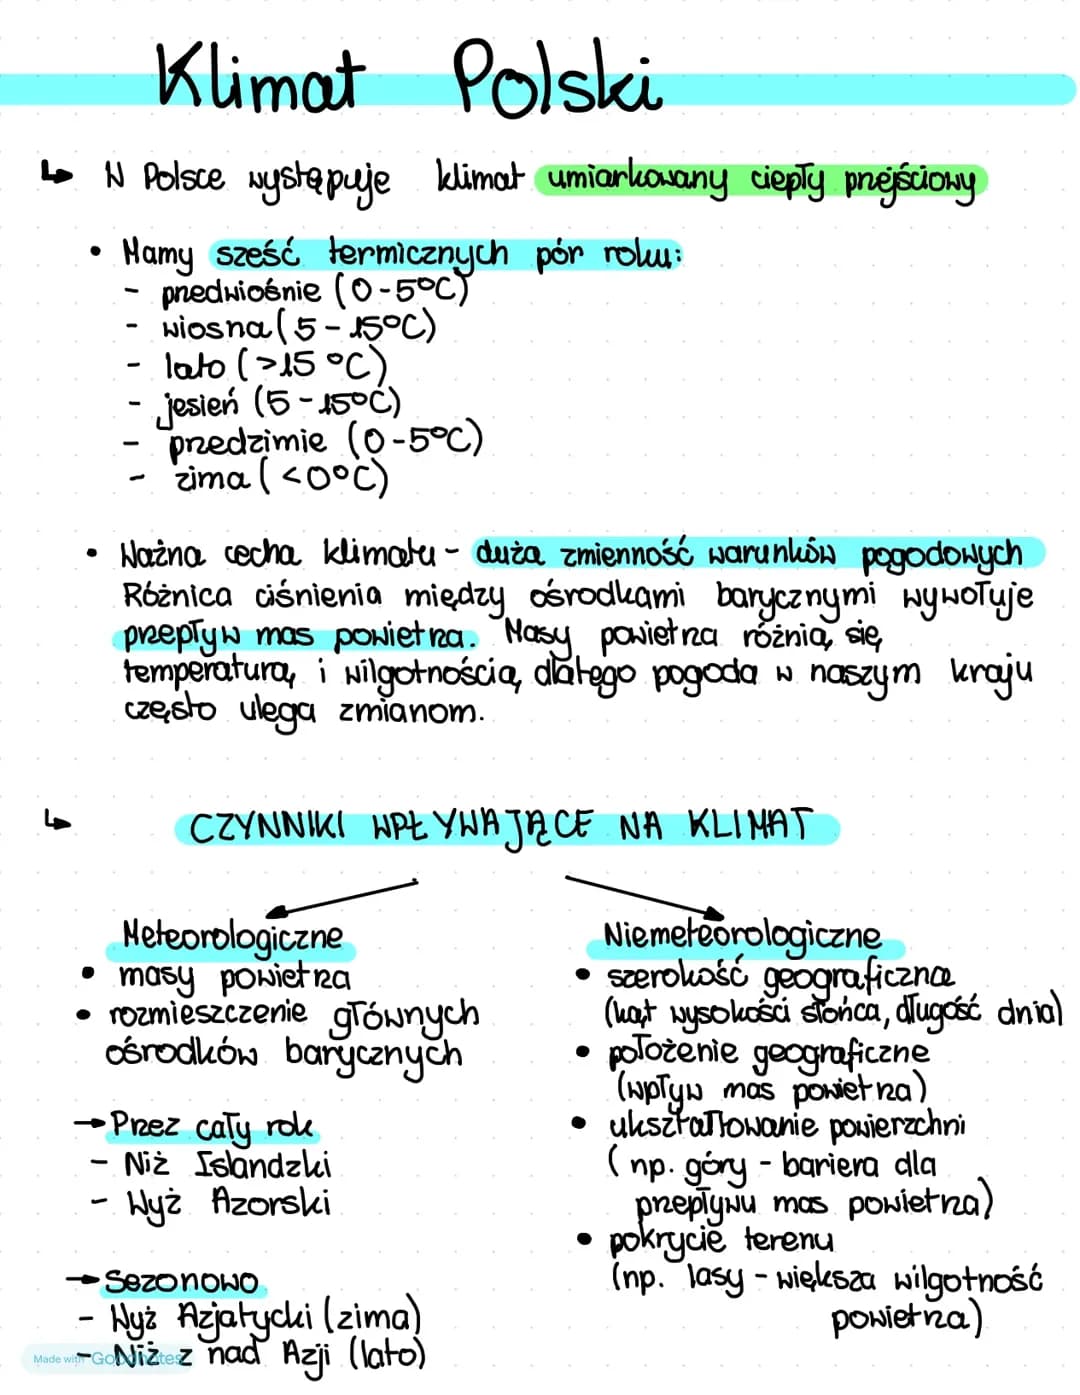 Klimat Polski
↳ W Polsce występuje klimat umiarkowany ciepły przejściowy
• Mamy sześć termicznych pór roku:
- przedwiośnie (0-5°C)
- wiosna (5-15°C)
- lato (>15 °C)
- jesień (5-15°C)
- przedzimie (0-5°C)
- zima (<0°C)
• Ważna cecha klimatu - duża zmienność warunków pogodowych
Różnica ciśnienia między ośrodkami barycznymi wywołuje
przepływ mas powietrza. Masy powietrza różnią się
temperaturą i wilgotnością, dlatego pogoda w naszym kraju
często ulega zmianom.
↳ CZYNNIKI WPŁYWAJĄCE NA KLIMAT
Meteorologiczne
• masy powietrza
• rozmieszczenie głównych
ośrodków barycznych
→ Przez cały rok
- Niż Islandzki
- Wyż Azorski
→ Sezonowo
- Wyż Azjatycki (zima)
- Niż z nad Azji (lato)
Niemeteorologiczne
• szerokość geograficzna
(kąt wysokości słońca, długość dnia)
• położenie geograficzne
(wpływ mas powietrza)
• ukształtowanie powierzchni
(np. góry - bariera dla
przepływu mas powietrza)
• pokrycie terenu
(np. lasy - większa wilgotność
powietrza)
Made with Goodnotes